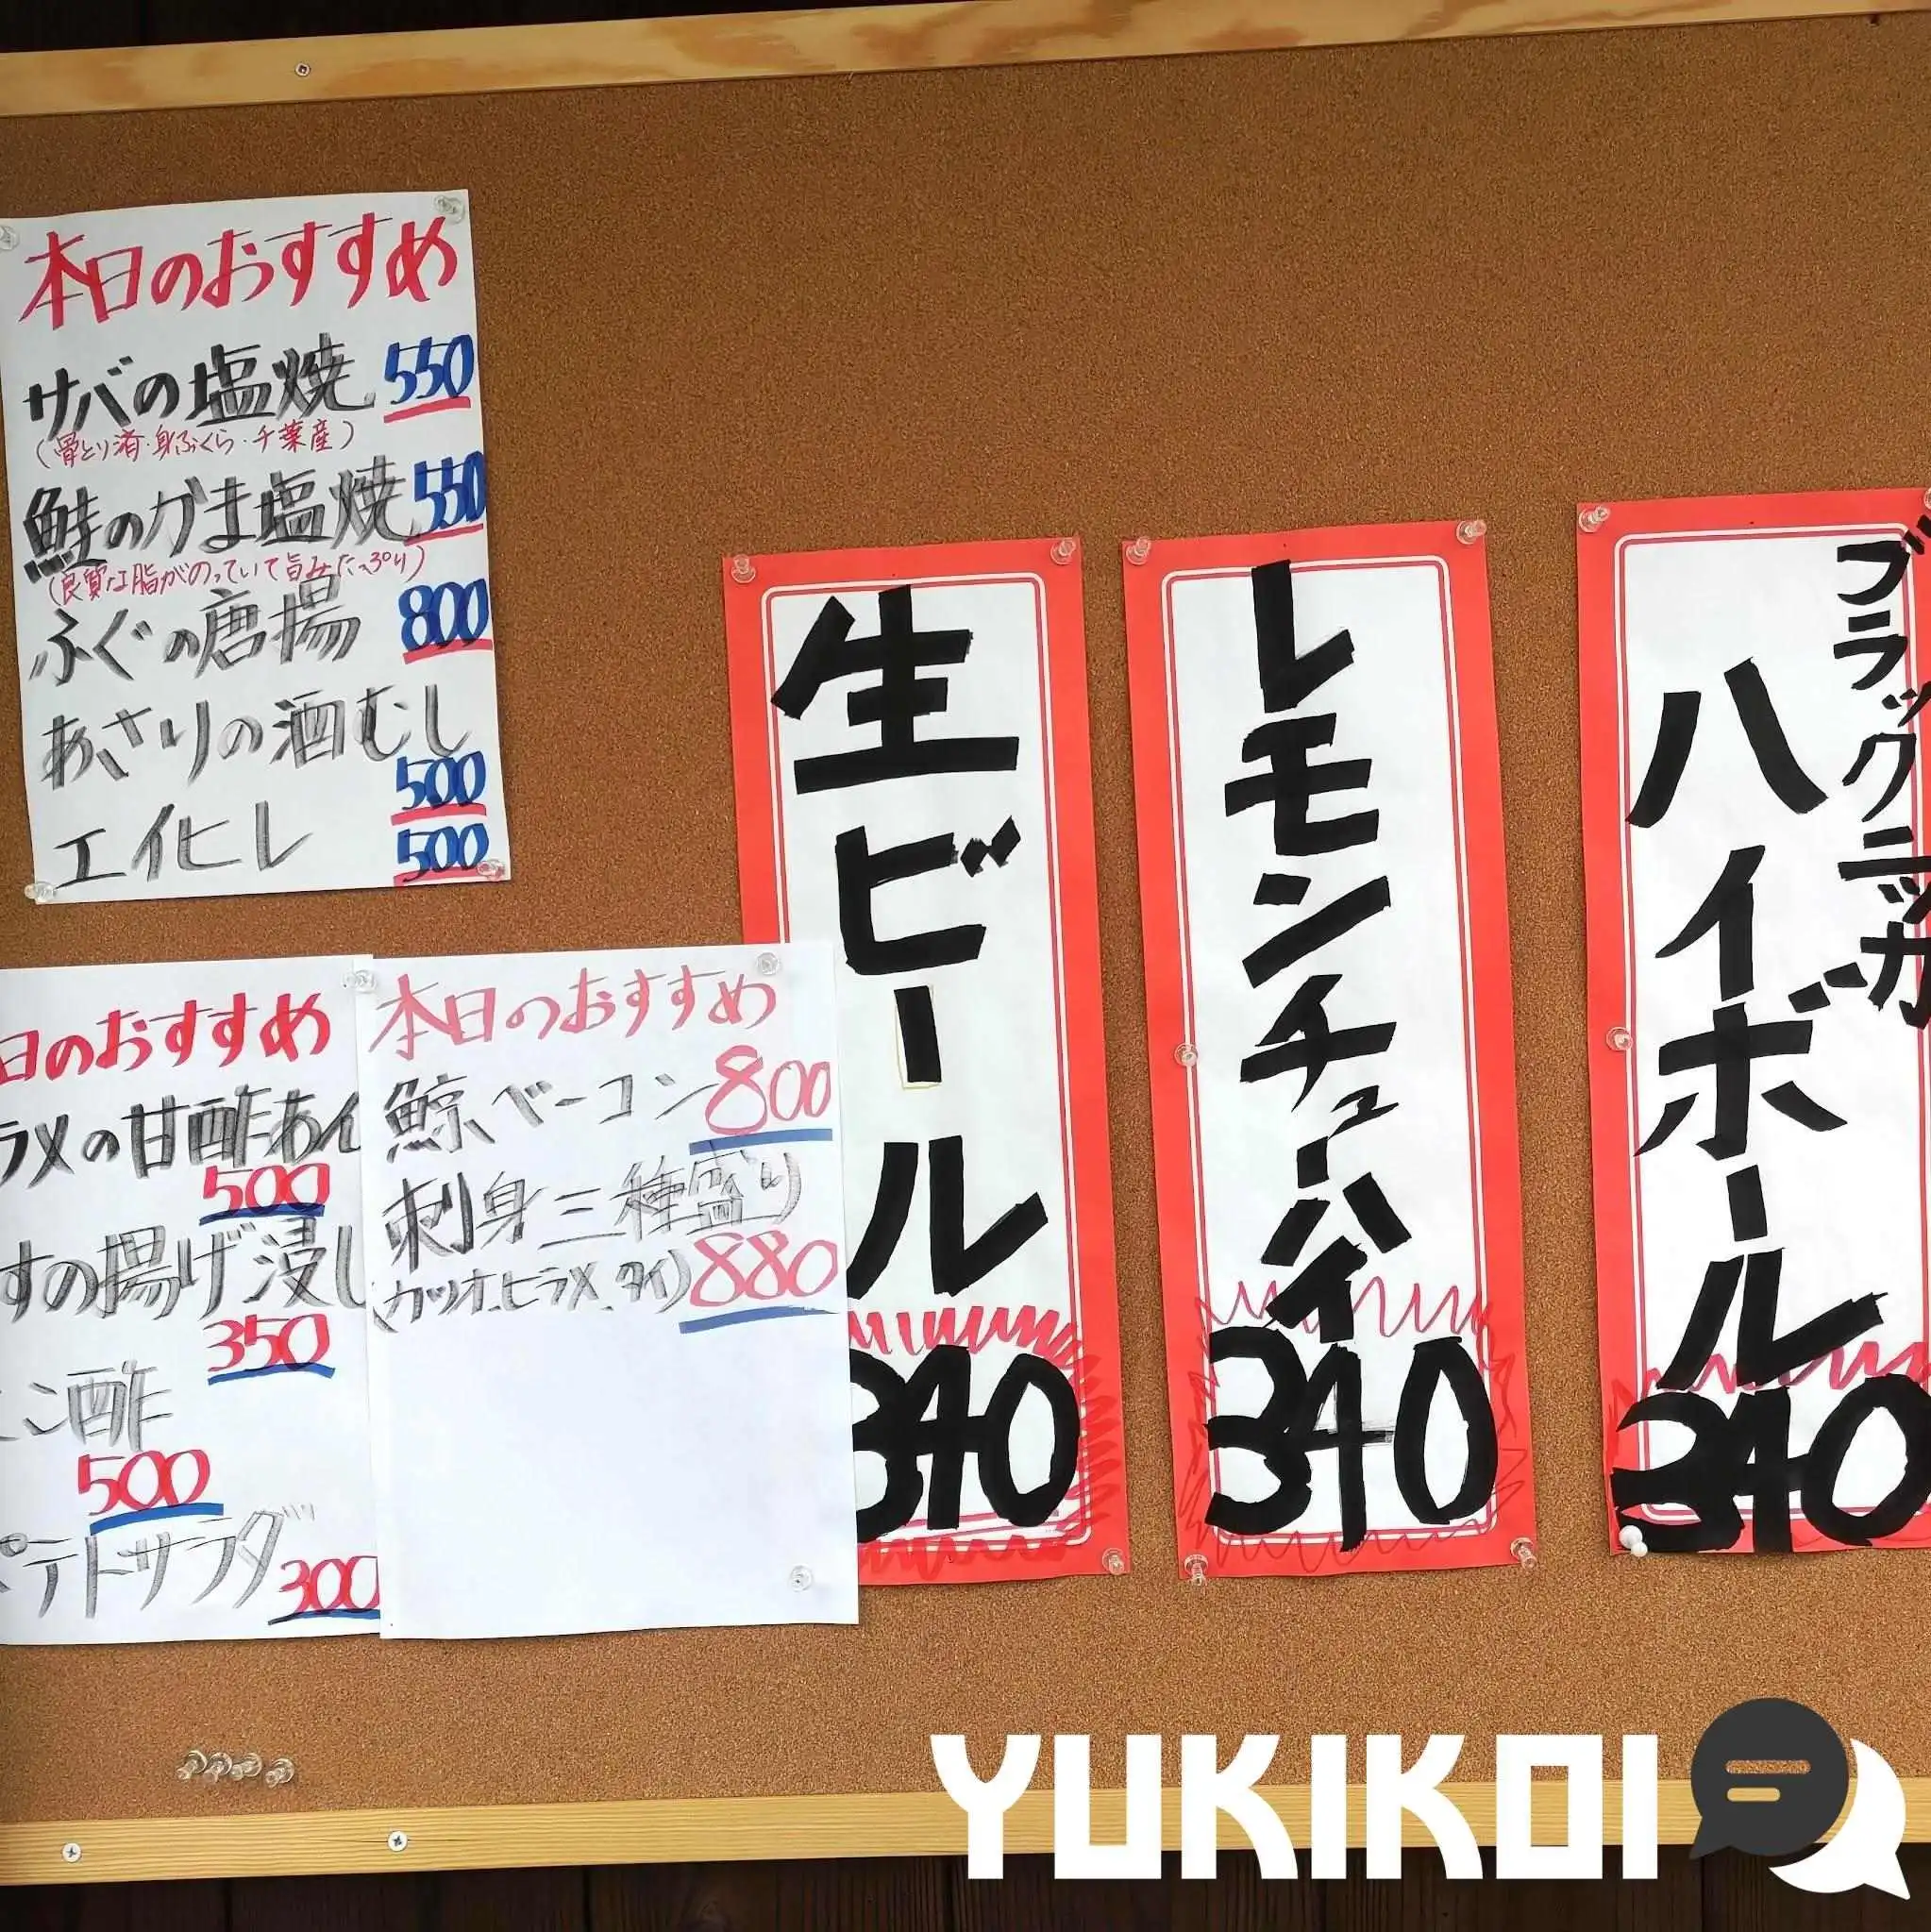 本日のおすすめ
サバの塩焼 550
(骨とり済・身ふくら・千葉産)
鮭のかま塩焼 550
(良質な脂がのっていて旨みたっぷり)
ふぐの唐揚 800
あさりの酒むし
500
エイヒレ 500
日のおすすめ
ラメの甘酢あん
500
すの揚げ浸し
350
こ酢
500
ポテトサラダ
300
本日のおすすめ
鯨ベーコン 800
刺身三種盛り
(カツオ、ヒラメ、タイ) 880
生ビール
340
レモンチューハイ
340
ブラックニッカ
ハイボール
340
YUKIKOI